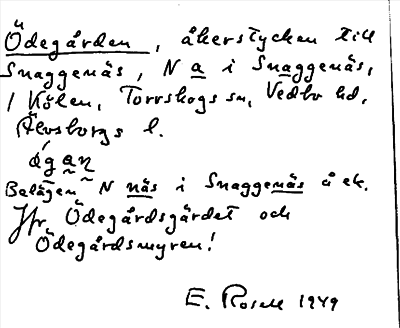 Ödegården, åkerstycken till
Snaggenäs, N a i Snaggenäs,
i Kölen, Torrskogs sn, Vedbo hd,
Älvsborgs l.
ó̄gan
Belägen N näs i Snaggenäs å ek.
Jfr Ödegårdsgärdet och
Ödegårdsmyren!
E. Rosell 1949